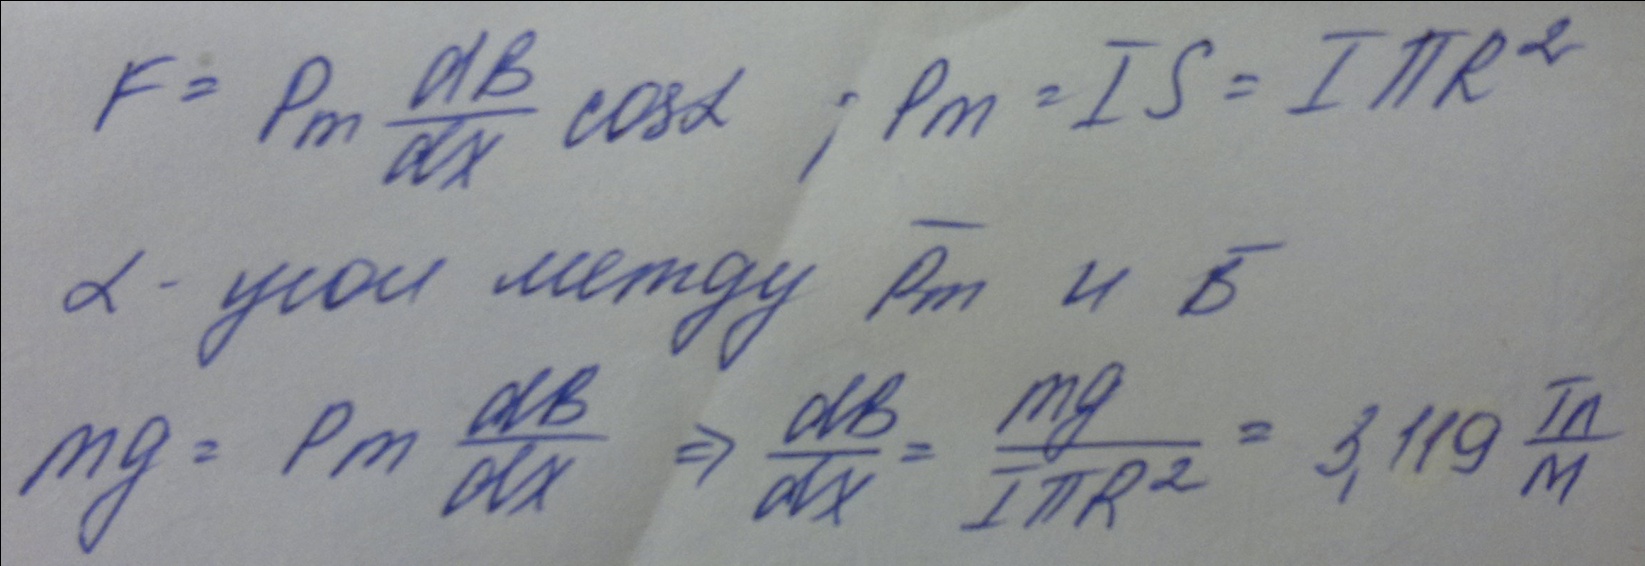 F = Pm dB/dx cosα ; Pm = IS = IπR²
α - угол между P̅m и B̅
mg = Pm dB/dx ⇒ dB/dx = mg/IπR² = 3,119 Тл/м